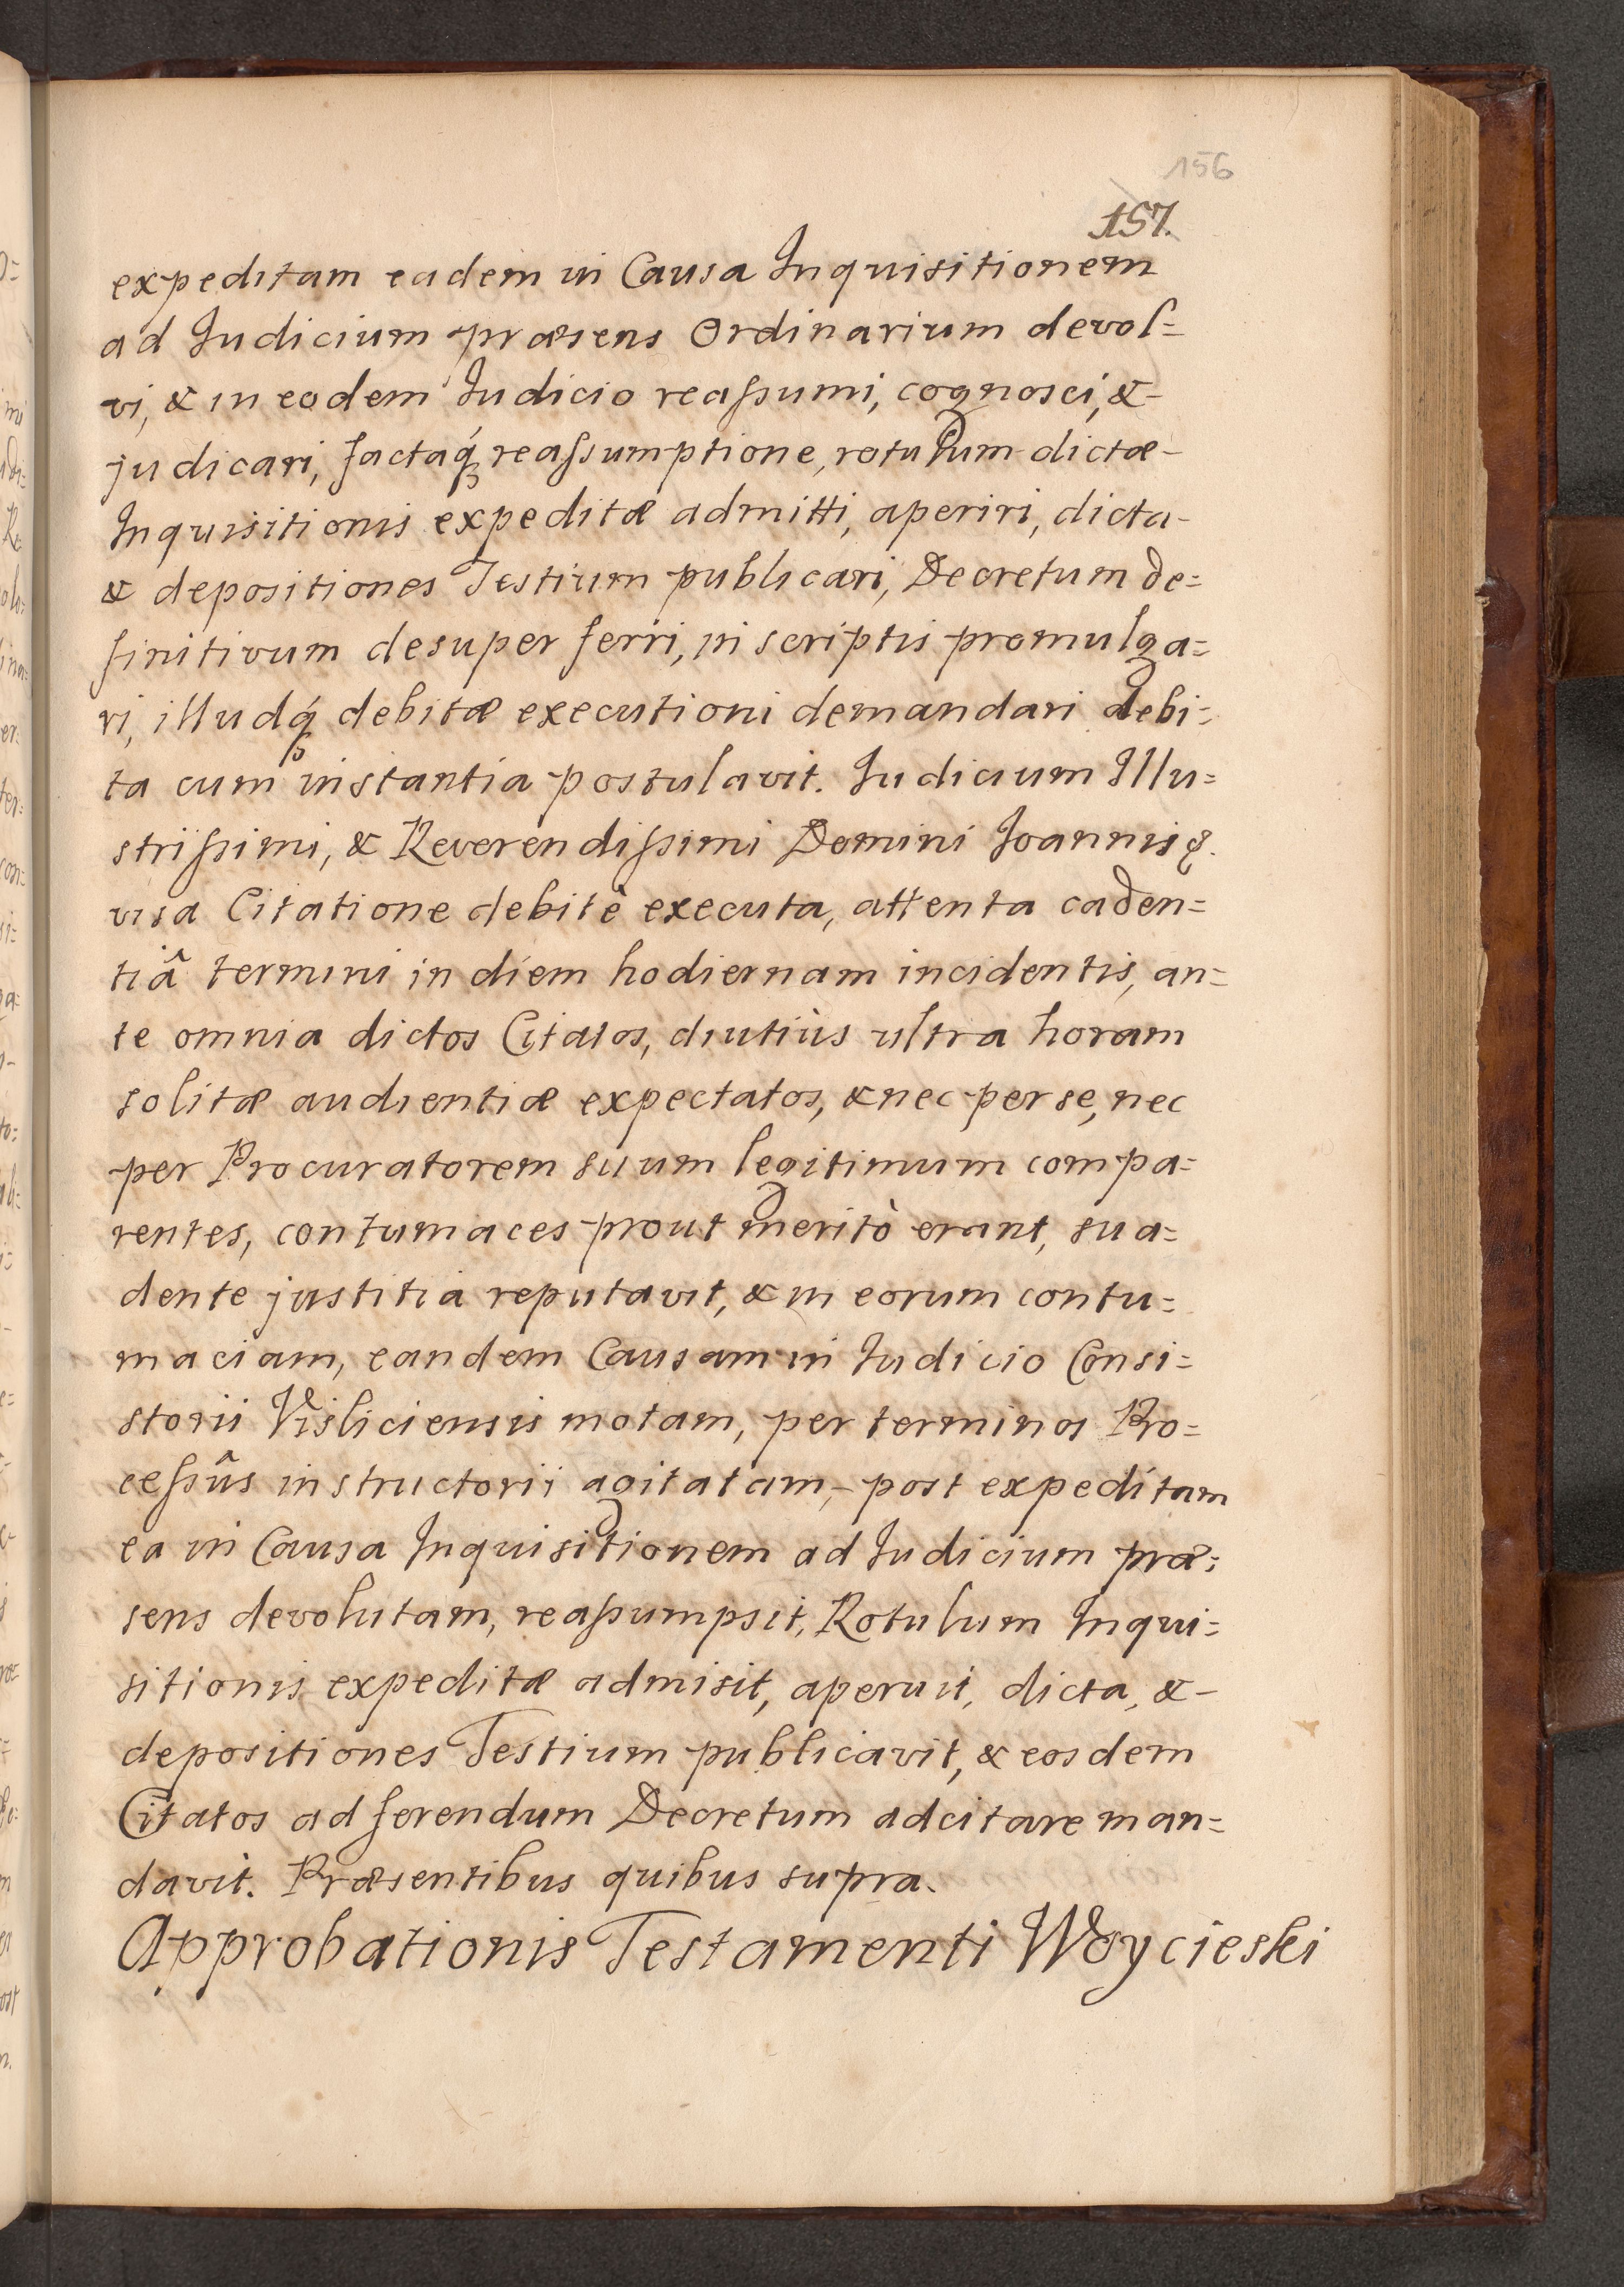 156
157.
expeditam eadem in Causa Inquisitionem
ad Iudicium præsens Ordinarium devol=
vi, & in eodem Iudicio reaſsumi, cognosci, &-
judicari, factaq́ꝫ reaſsumptione, rotulum dictæ-
Inquisitionis expeditæ admitti, aperiri, dicta-
& depositiones Testium publicari, Decretum de=
finitivum desuper ferri, in scriptis promulga=
ri, illudq́ꝫ debitæ executioni demandari debi=
ta cum instantia postulavit. Iudicium Illu=
striſsimi, & Reverendiſsimi Domini Ioannis &.
visa Citatione debitè executa, attenta caden=
tiâ termini in diem hodiernam incidentis, an=
te omnia dictos Citatos, diutiùs ultra horam
solitæ audientiæ expectatos, & nec per se, nec
per Procuratorem suum legitimum compa=
rentes, contumaces prout meritò erant, sua=
dente justitia reputavit, & in eorum contu=
maciam, eandem Causam in Iudicio Consi=
storii Visliciensis motam, per terminos Pro=
ceſsûs instructorii agitatam,- post expeditam
ea in Causa Inquisitionem ad Iudicium præ=
sens devolutam, reaſsumpsit, Rotulum Inqui=
sitionis expeditæ admisit, aperuit, dicta, &-
depositiones Testium publicavit, & eosdem
Citatos ad ferendum Decretum adcitare man=
davit. Præsentibus quibus supra.
Approbationis Testamenti Woycieski